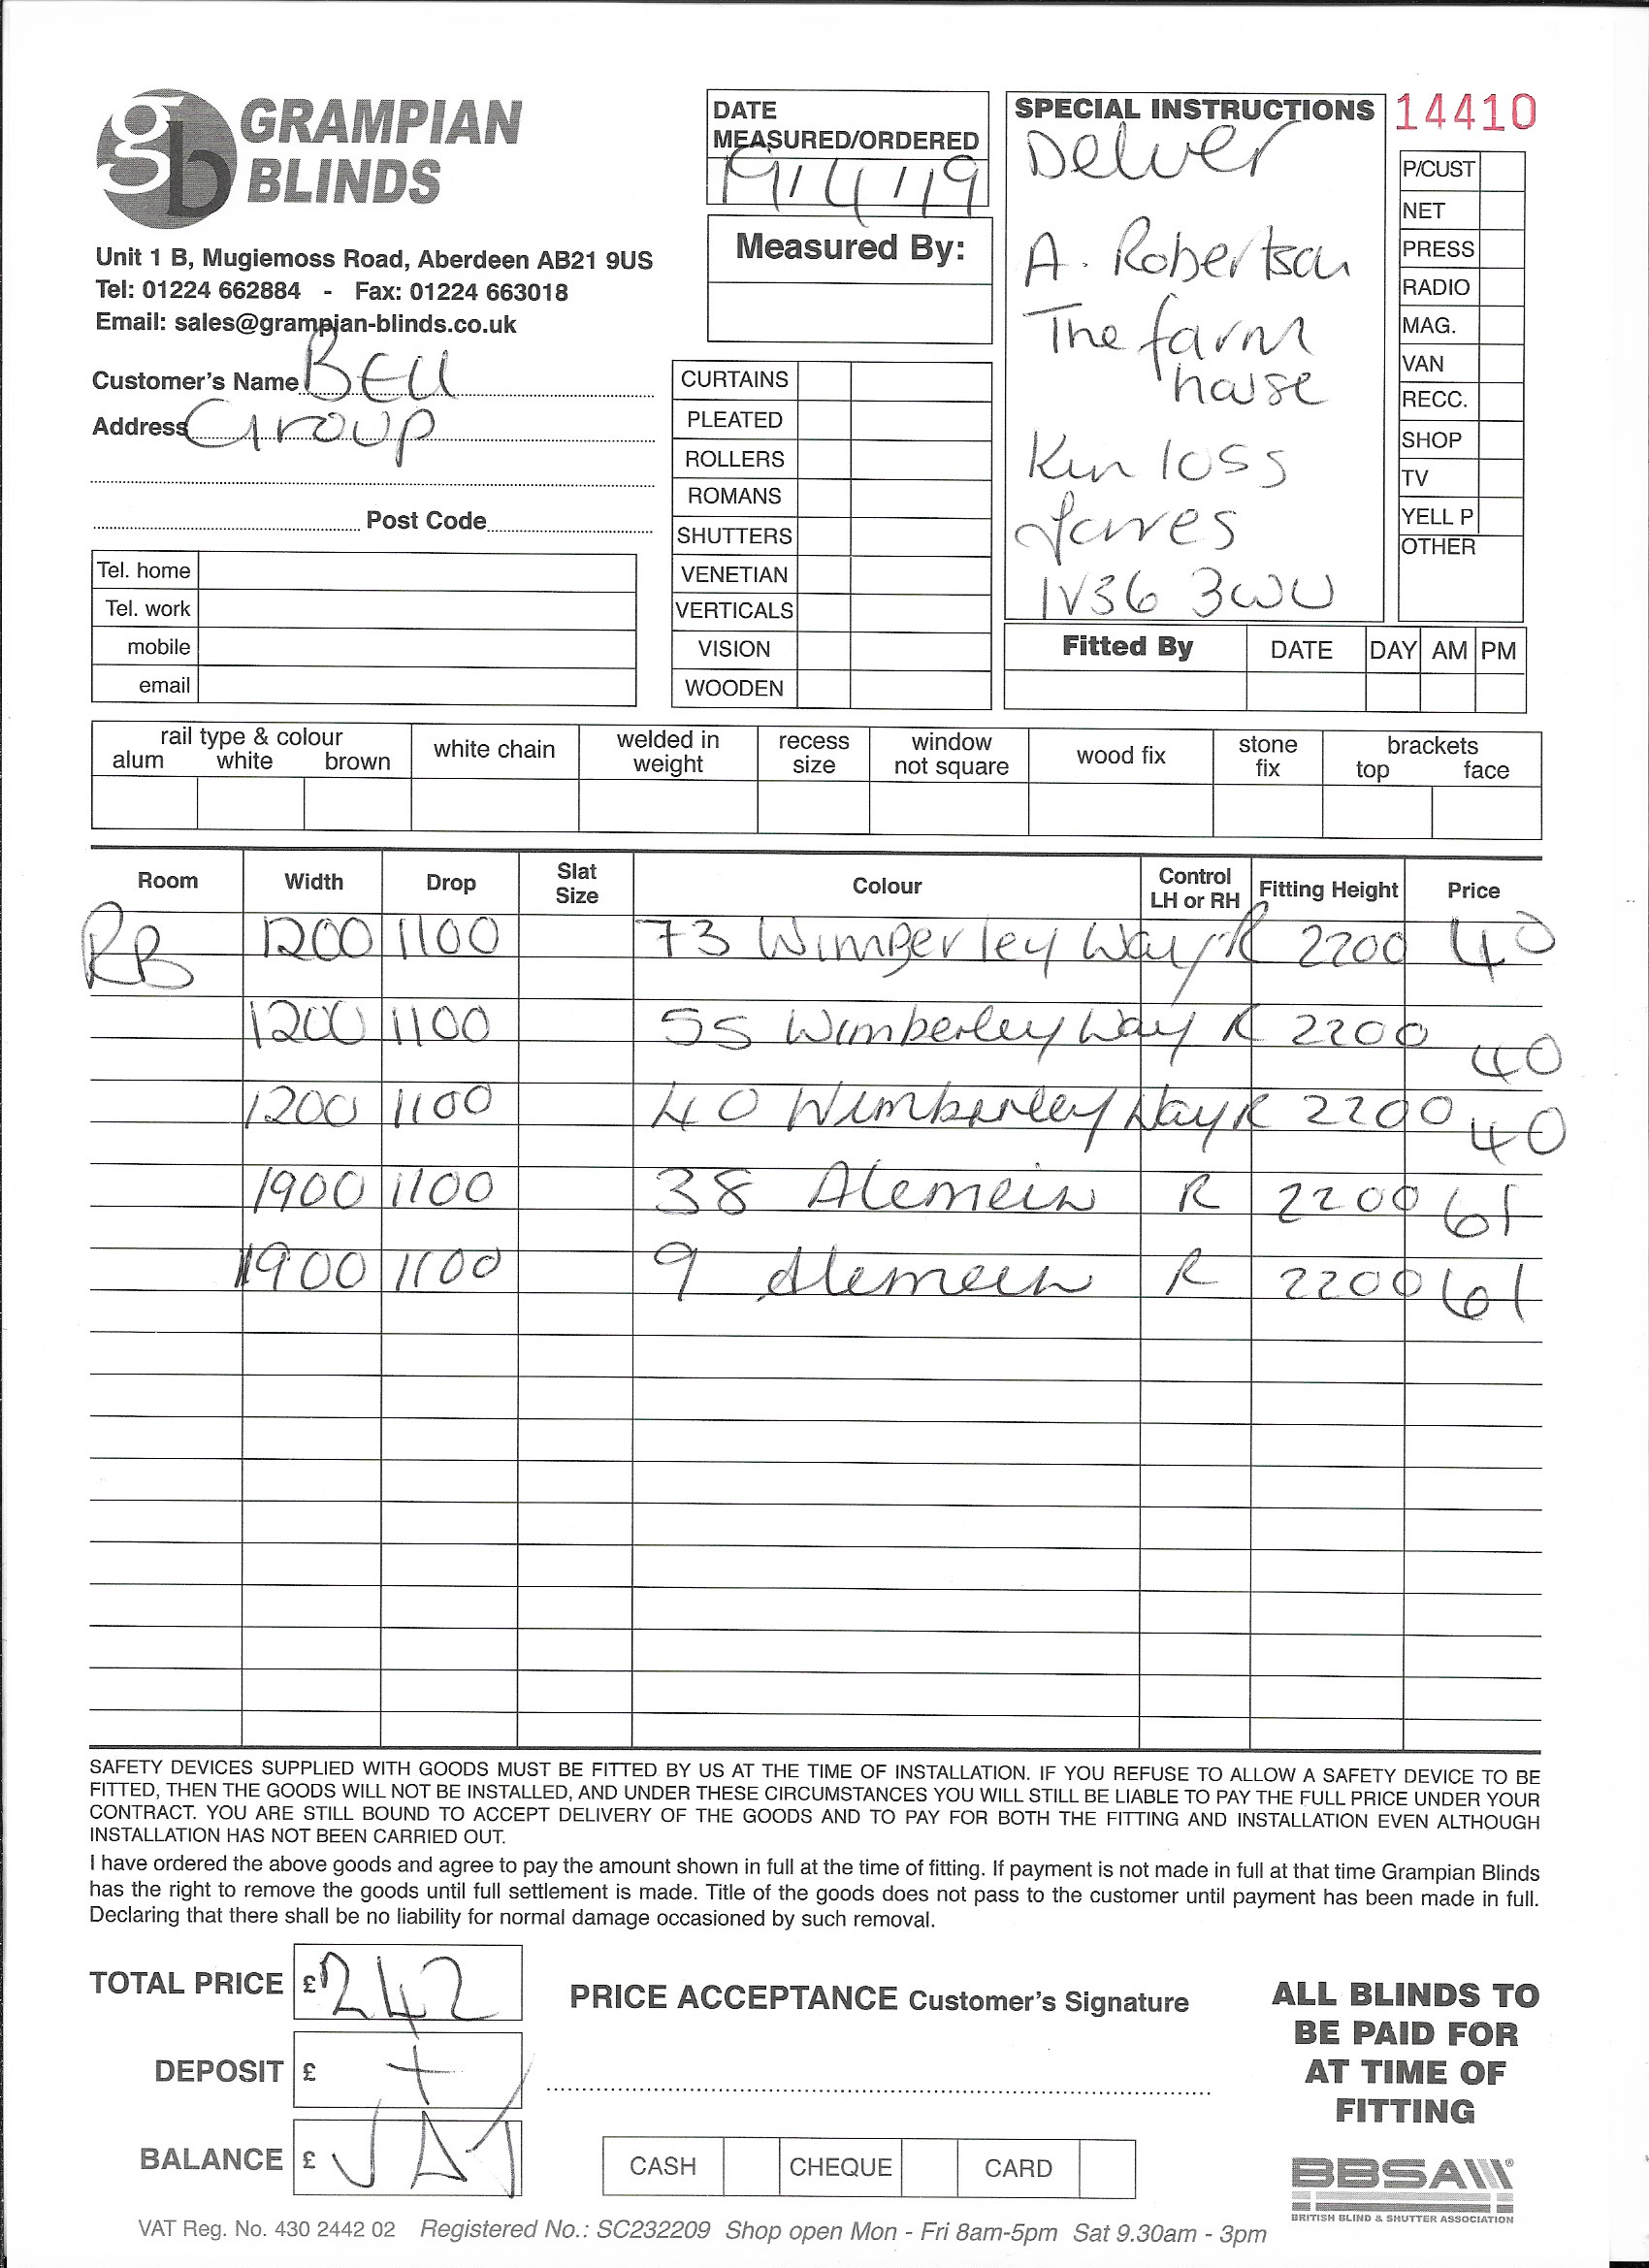 gb GRAMPIAN
BLINDS
Unit 1 B, Mugiemoss Road, Aberdeen AB21 9US
Tel: 01224 662884 - Fax: 01224 663018
Email: sales@grampian-blinds.co.uk
Customer's Name Bell
Address Group
Post Code
Tel. home
Tel. work
mobile
email
DATE
MEASURED/ORDERED
19/4/19
Measured By:
CURTAINS
PLEATED
ROLLERS
ROMANS
SHUTTERS
VENETIAN
VERTICALS
VISION
WOODEN
SPECIAL INSTRUCTIONS
Deliver
A. Robertson
The farm
house
Kinloss
forres
IV36 3WU
14410
P/CUST
NET
PRESS
RADIO
MAG.
VAN
RECC.
SHOP
TV
YELL P
OTHER
Fitted By DATE DAY AM PM
rail type & colour white chain welded in weight recess size window not square wood fix stone fix brackets
alum white brown top face
Room Width Drop Slat Size Colour Control LH or RH Fitting Height Price
RB 1200 1100 73 Wimberley Way R 2200 40
1200 1100 55 Wimberley Way R 2200 40
1200 1100 40 Wimberley Way R 2200 40
1900 1100 38 Alemein R 2200 61
1900 1100 9 Alemein R 2200 61
SAFETY DEVICES SUPPLIED WITH GOODS MUST BE FITTED BY US AT THE TIME OF INSTALLATION. IF YOU REFUSE TO ALLOW A SAFETY DEVICE TO BE
FITTED, THEN THE GOODS WILL NOT BE INSTALLED, AND UNDER THESE CIRCUMSTANCES YOU WILL STILL BE LIABLE TO PAY THE FULL PRICE UNDER YOUR
CONTRACT. YOU ARE STILL BOUND TO ACCEPT DELIVERY OF THE GOODS AND TO PAY FOR BOTH THE FITTING AND INSTALLATION EVEN ALTHOUGH
INSTALLATION HAS NOT BEEN CARRIED OUT.
I have ordered the above goods and agree to pay the amount shown in full at the time of fitting. If payment is not made in full at that time Grampian Blinds
has the right to remove the goods until full settlement is made. Title of the goods does not pass to the customer until payment has been made in full.
Declaring that there shall be no liability for normal damage occasioned by such removal.
TOTAL PRICE £ 242
DEPOSIT £ +
BALANCE £ VAT
PRICE ACCEPTANCE Customer's Signature
CASH CHEQUE CARD
ALL BLINDS TO
BE PAID FOR
AT TIME OF
FITTING
BBSA
BRITISH BLIND & SHUTTER ASSOCIATION
VAT Reg. No. 430 2442 02 Registered No.: SC232209 Shop open Mon - Fri 8am-5pm Sat 9.30am - 3pm